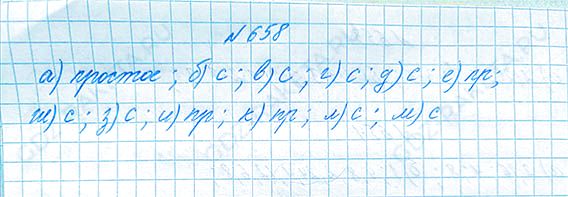 № 658
а) простое; б) с; в) с; г) с; д) с; е) пр;
ж) с; з) с; и) пр; к) пр; л) с; м) с